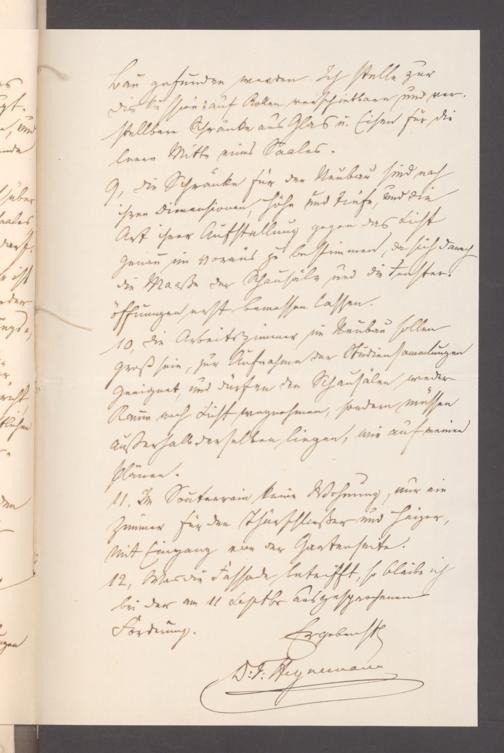 Bau gefunden werden. Ich stelle zur
Diskussion: auf Rollen verschiebbare und ver-
stellbare Schränke aus Glas u. Eisen für die
leere Mitte eines Saales.
9, die Schränke für den Neubau sind nach
ihren Dimensionen, Höhe und Tiefe, und die
Art ihrer Aufstellung gegen das Licht
genau im voraus zu bestimmen, da sich danach
die Maaße der Schausäle und die Fenster-
öffnungen erst bemessen lassen.
10, die Arbeitszimmer im Neubau sollen
groß sein, zur Aufnahme der Studiensammlungen
geeignet, und dürfen den Schausälen weder
Raum noch Licht wegnehmen, sondern müssen
außerhalb derselben liegen, wie auf meinen
Plänen.
11, Im Souterrain keine Wohnung, nur ein
Zimmer für den Thürschließer und Heizer,
mit Eingang von der Gartenseite.
12, Was die Fassade betrifft, so bleibe ich
bei der am 11 Septbr ausgesprochenen
Forderung.
Ergebenst
D. F. Heynemann